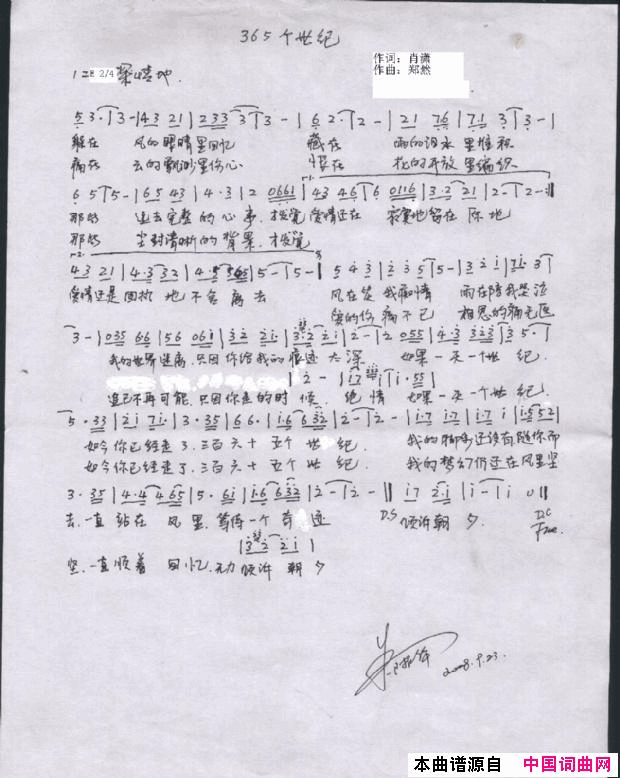 365个世纪
作词：肖潇
作曲：郑然
1=E 2/4 深情地
5 3· 3- | 43 21 | 233 3 | 3 - | 6 2· 2 - | 21 76 | 7·1 3 | 3 - |
躲在 风的眼睛里回忆 藏在 雨的泪水里堆积
痛在 云的飘渺里伤心 恨在 花的开放里编织
6 5 5 - | 65 43 | 4·3 | 2 0661 | 43 46 6 0116 | 3·2 21 | 2 - 2 - :||
那些 过去完整的心事,才发觉 爱情还在 寂寞地留在原地
那些 尘封清晰的背景,才发觉
43 21 | 4·3 32 | 4·5 565 | 5 - 5 - | 5 4 3 | 2 3 5 5 - | 3 2 i | 7i· 3
爱情还是固执地不舍离去 风在笑我痴情 雨在陪我哭泣
爱的伤痛不已 相思的痛无医
3 - | 035 66 | 56 06i | 32 2i· | 3·2 2i | 2 - 2 055 | 4·3 323 | 3 5·
我的世界迷离,只因你给我的恨迹太深 如果一天一个世纪,
| 2 - | i7 i | i· 55 |
追忆不再可能,只因你走的时候,绝情 如果一天一个世纪,
5 · 33 | 2i 7i· | 3·35 | 66· | i·6 632 | 2 - 2 - | i·7 i7 | i·7 i | i·552 |
如今你已经走了,三百六十五个世纪, 我的脚步还没有随你而
如今你已经走了,三百六十五个世纪, 我的梦幻仍还在风里坚
3· 35 | 4·4 465 | 5· 6i | i·6 632 | 2 - 2 - || i7 2·i | i - i 0 ||
去,一直站在风里,等待一个奇迹 D.S 倾诉朝夕 D.C Fine
| 3·2 2i |
坚,一直顺着回忆,无力倾诉朝夕
2008.9.23.
本曲谱源自 中国词曲网